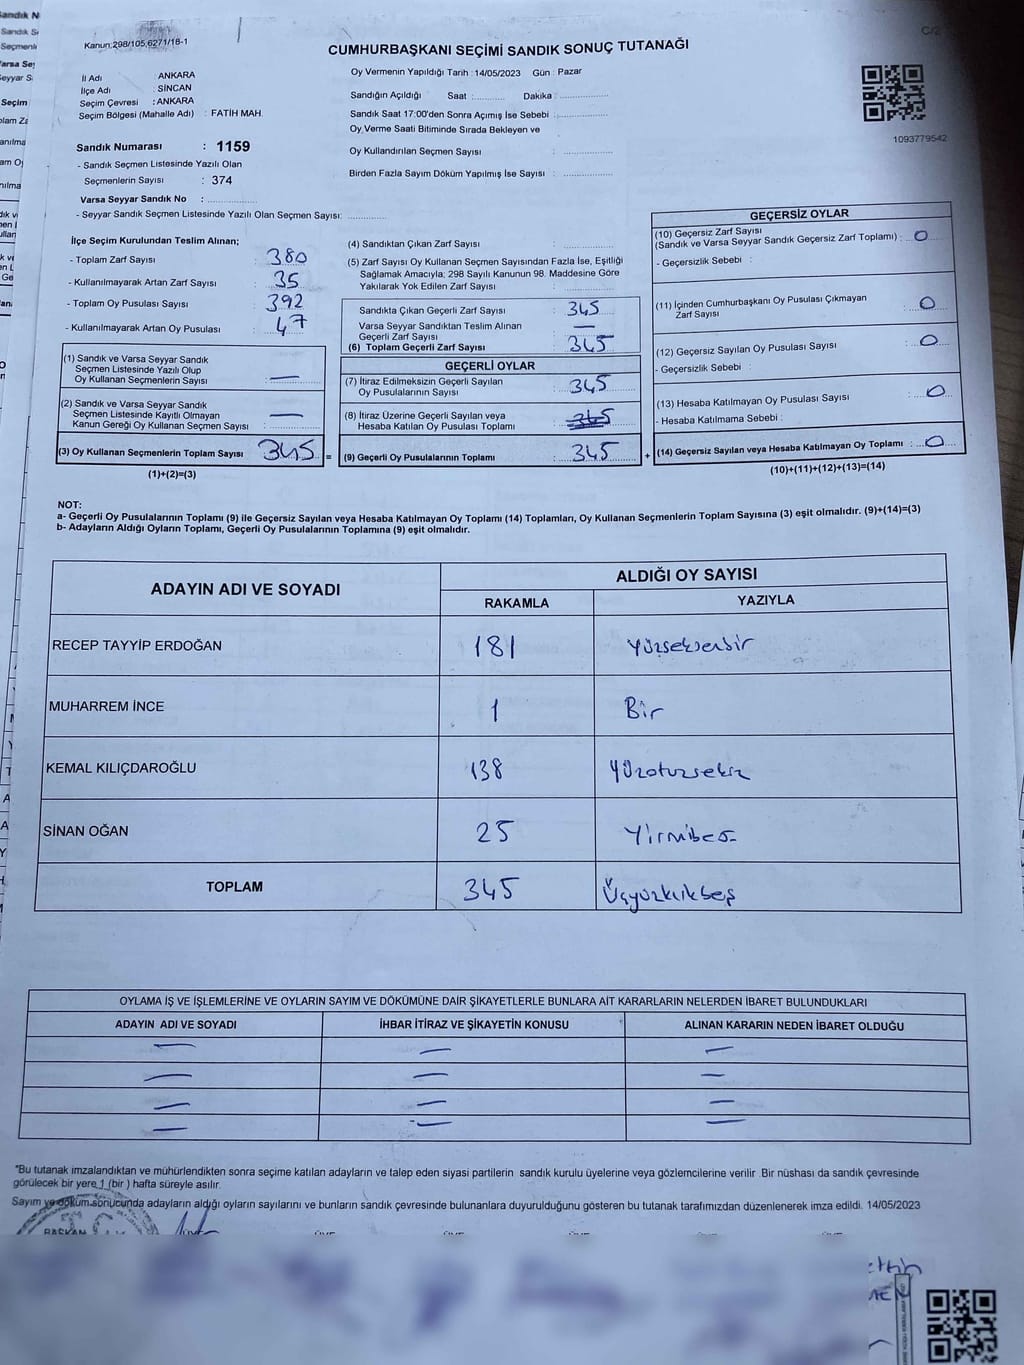 Kanun:298/105,6271/18-1
CUMHURBAŞKANI SEÇİMİ SANDIK SONUÇ TUTANAĞI
C/2
İl Adı : ANKARA
İlçe Adı : SİNCAN
Seçim Çevresi : ANKARA
Seçim Bölgesi (Mahalle Adı) : FATİH MAH.
Oy Vermenin Yapıldığı Tarih : 14/05/2023 Gün : Pazar
Sandığın Açıldığı Saat :........... Dakika :................
Sandık Saat 17:00'den Sonra Açımış İse Sebebi :................
Oy Verme Saati Bitiminde Sırada Bekleyen ve
Oy Kullandırılan Seçmen Sayısı :................
Birden Fazla Sayım Döküm Yapılmış İse Sayısı :................
1093779542
Sandık Numarası : 1159
- Sandık Seçmen Listesinde Yazılı Olan
Seçmenlerin Sayısı : 374
Varsa Seyyar Sandık No :................
- Seyyar Sandık Seçmen Listesinde Yazılı Olan Seçmen Sayısı: ............
İlçe Seçim Kurulundan Teslim Alınan;
- Toplam Zarf Sayısı : 380
- Kullanılmayarak Artan Zarf Sayısı : 35
- Toplam Oy Pusulası Sayısı : 392
- Kullanılmayarak Artan Oy Pusulası : 47
(1) Sandık ve Varsa Seyyar Sandık
Seçmen Listesinde Yazılı Olup
Oy Kullanan Seçmenlerin Sayısı : —
(2) Sandık ve Varsa Seyyar Sandık
Seçmen Listesinde Kayıtlı Olmayan
Kanun Gereği Oy Kullanan Seçmen Sayısı : —
(3) Oy Kullanan Seçmenlerin Toplam Sayısı 345 =
(1)+(2)=(3)
(4) Sandıktan Çıkan Zarf Sayısı :................
(5) Zarf Sayısı Oy Kullanan Seçmen Sayısından Fazla İse, Eşitliği
Sağlamak Amacıyla; 298 Sayılı Kanunun 98. Maddesine Göre
Yakılarak Yok Edilen Zarf Sayısı :................
Sandıkta Çıkan Geçerli Zarf Sayısı : 345
Varsa Seyyar Sandıktan Teslim Alınan
Geçerli Zarf Sayısı : —
(6) Toplam Geçerli Zarf Sayısı : 345
GEÇERLİ OYLAR
(7) İtiraz Edilmeksizin Geçerli Sayılan
Oy Pusulalarının Sayısı : 345
(8) İtiraz Üzerine Geçerli Sayılan veya
Hesaba Katılan Oy Pusulası Toplamı : 345
(9) Geçerli Oy Pusulalarının Toplamı : 345 +
GEÇERSİZ OYLAR
(10) Geçersiz Zarf Sayısı
(Sandık ve Varsa Seyyar Sandık Geçersiz Zarf Toplamı) : 0
- Geçersizlik Sebebi :
(11) İçinden Cumhurbaşkanı Oy Pusulası Çıkmayan
Zarf Sayısı : 0
(12) Geçersiz Sayılan Oy Pusulası Sayısı : 0
- Geçersizlik Sebebi :
(13) Hesaba Katılmayan Oy Pusulası Sayısı : 0
- Hesaba Katılmama Sebebi :
(14) Geçersiz Sayılan veya Hesaba Katılmayan Oy Toplamı : 0
(10)+(11)+(12)+(13)=(14)
NOT:
a- Geçerli Oy Pusulalarının Toplamı (9) ile Geçersiz Sayılan veya Hesaba Katılmayan Oy Toplamı (14) Toplamları, Oy Kullanan Seçmenlerin Toplam Sayısına (3) eşit olmalıdır. (9)+(14)=(3)
b- Adayların Aldığı Oyların Toplamı, Geçerli Oy Pusulalarının Toplamına (9) eşit olmalıdır.
ADAYIN ADI VE SOYADI ALDIĞI OY SAYISI
RAKAMLA YAZIYLA
RECEP TAYYİP ERDOĞAN 181 Yüzseksenbir
MUHARREM İNCE 1 Bir
KEMAL KILIÇDAROĞLU 138 Yüzotuzsekiz
SİNAN OĞAN 25 Yirmibeş
TOPLAM 345 Üçyüzkırkbeş
OYLAMA İŞ VE İŞLEMLERİNE VE OYLARIN SAYIM VE DÖKÜMÜNE DAİR ŞİKAYETLERLE BUNLARA AİT KARARLARIN NELERDEN İBARET BULUNDUKLARI
ADAYIN ADI VE SOYADI İHBAR İTİRAZ VE ŞİKAYETİN KONUSU ALINAN KARARIN NEDEN İBARET OLDUĞU
— — —
— — —
— — —
— — —
*Bu tutanak imzalandıktan ve mühürlendikten sonra seçime katılan adayların ve talep eden siyasi partilerin sandık kurulu üyelerine veya gözlemcilerine verilir. Bir nüshası da sandık çevresinde
görülecek bir yere 1 (bir ) hafta süreyle asılır.
Sayım ve döküm sonucunda adayların aldığı oyların sayılarını ve bunların sandık çevresinde bulunanlara duyurulduğunu gösteren bu tutanak tarafımızdan düzenlenerek imza edildi. 14/05/2023
T.C.
BAŞKAN